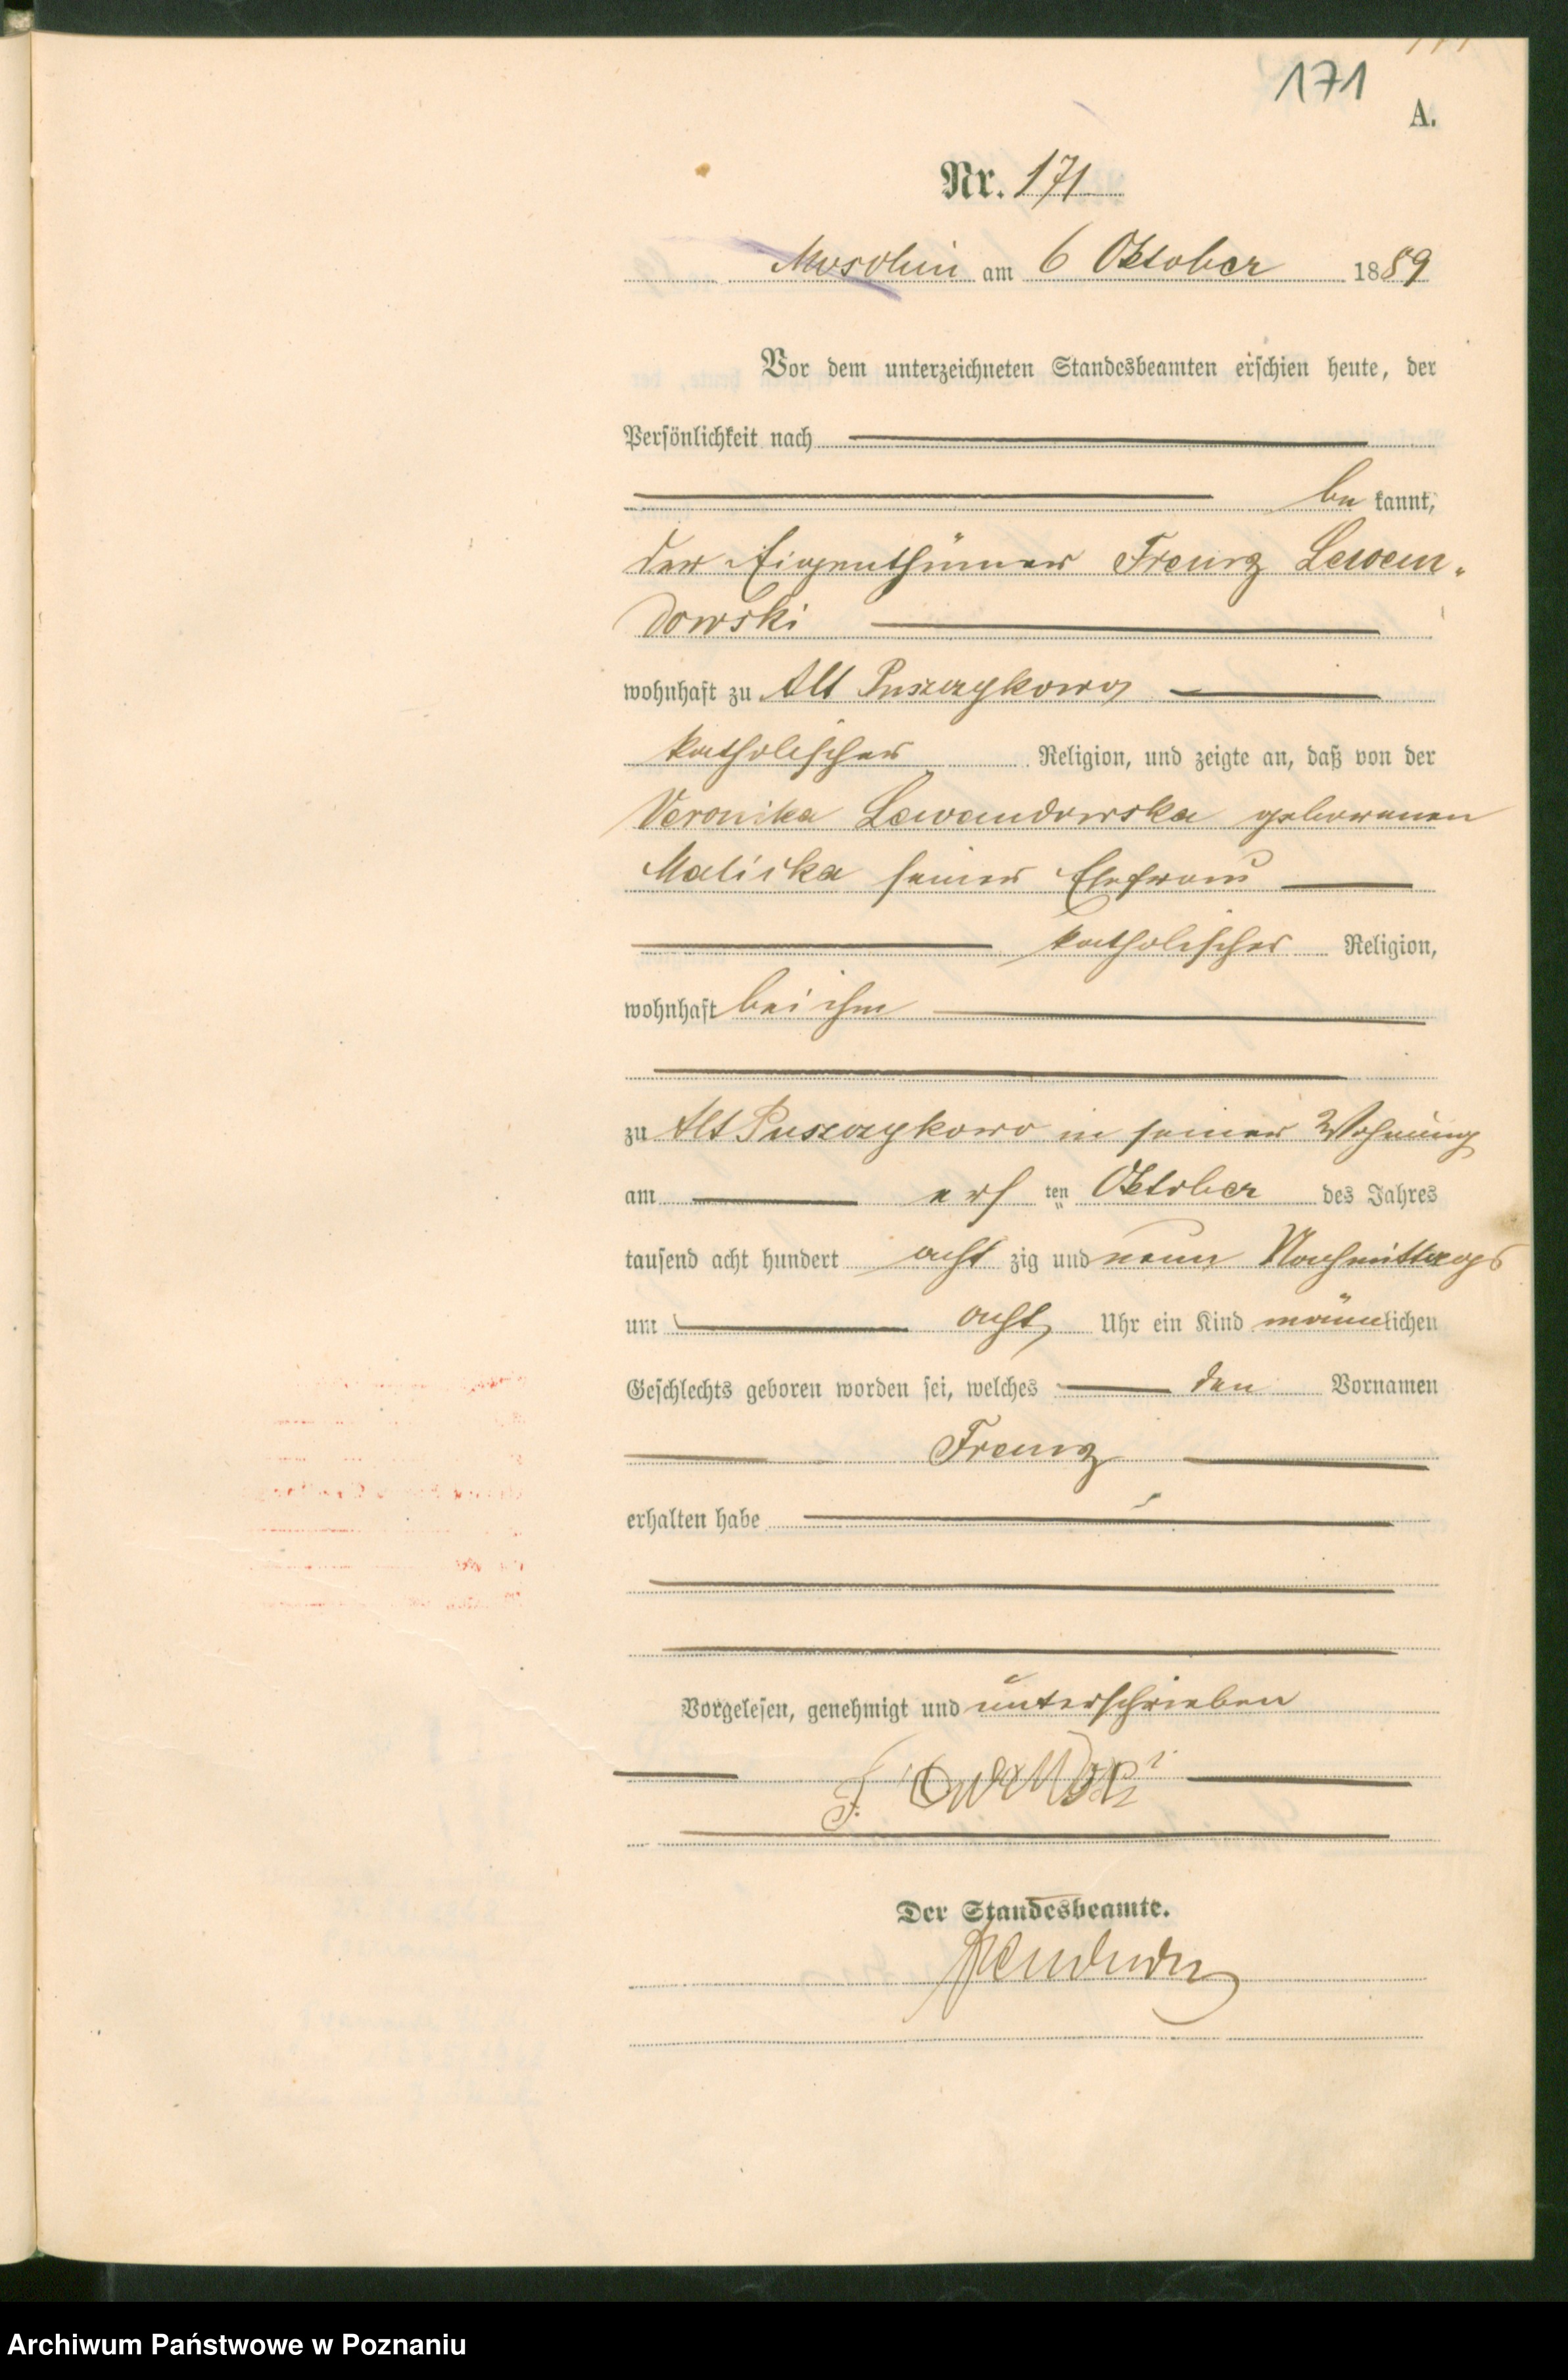 171
A.
Nr. 171
Moschin am 6 Oktober 1889
Vor dem unterzeichneten Standesbeamten erschien heute, der
Persönlichkeit nach
be kannt,
der Eigenthümer Franz Lewan-
dowski
wohnhaft zu Alt Puszczykowo
katholischer Religion, und zeigte an, daß von der
Veronika Lewandowska geborenen
Maliska seiner Ehefrau
katholischer Religion,
wohnhaft bei ihm
zu Alt Puszczykowo in seiner Wohnung
am ten Oktober des Jahres
tausend acht hundert acht zig und neun Nachmittags
um acht Uhr ein Kind männlichen
Geschlechts geboren worden sei, welches den Vornamen
Franz
erhalten habe
Vorgelesen, genehmigt und unterschrieben
F.
Der Standesbeamte.
Archiwum Państwowe w Poznaniu